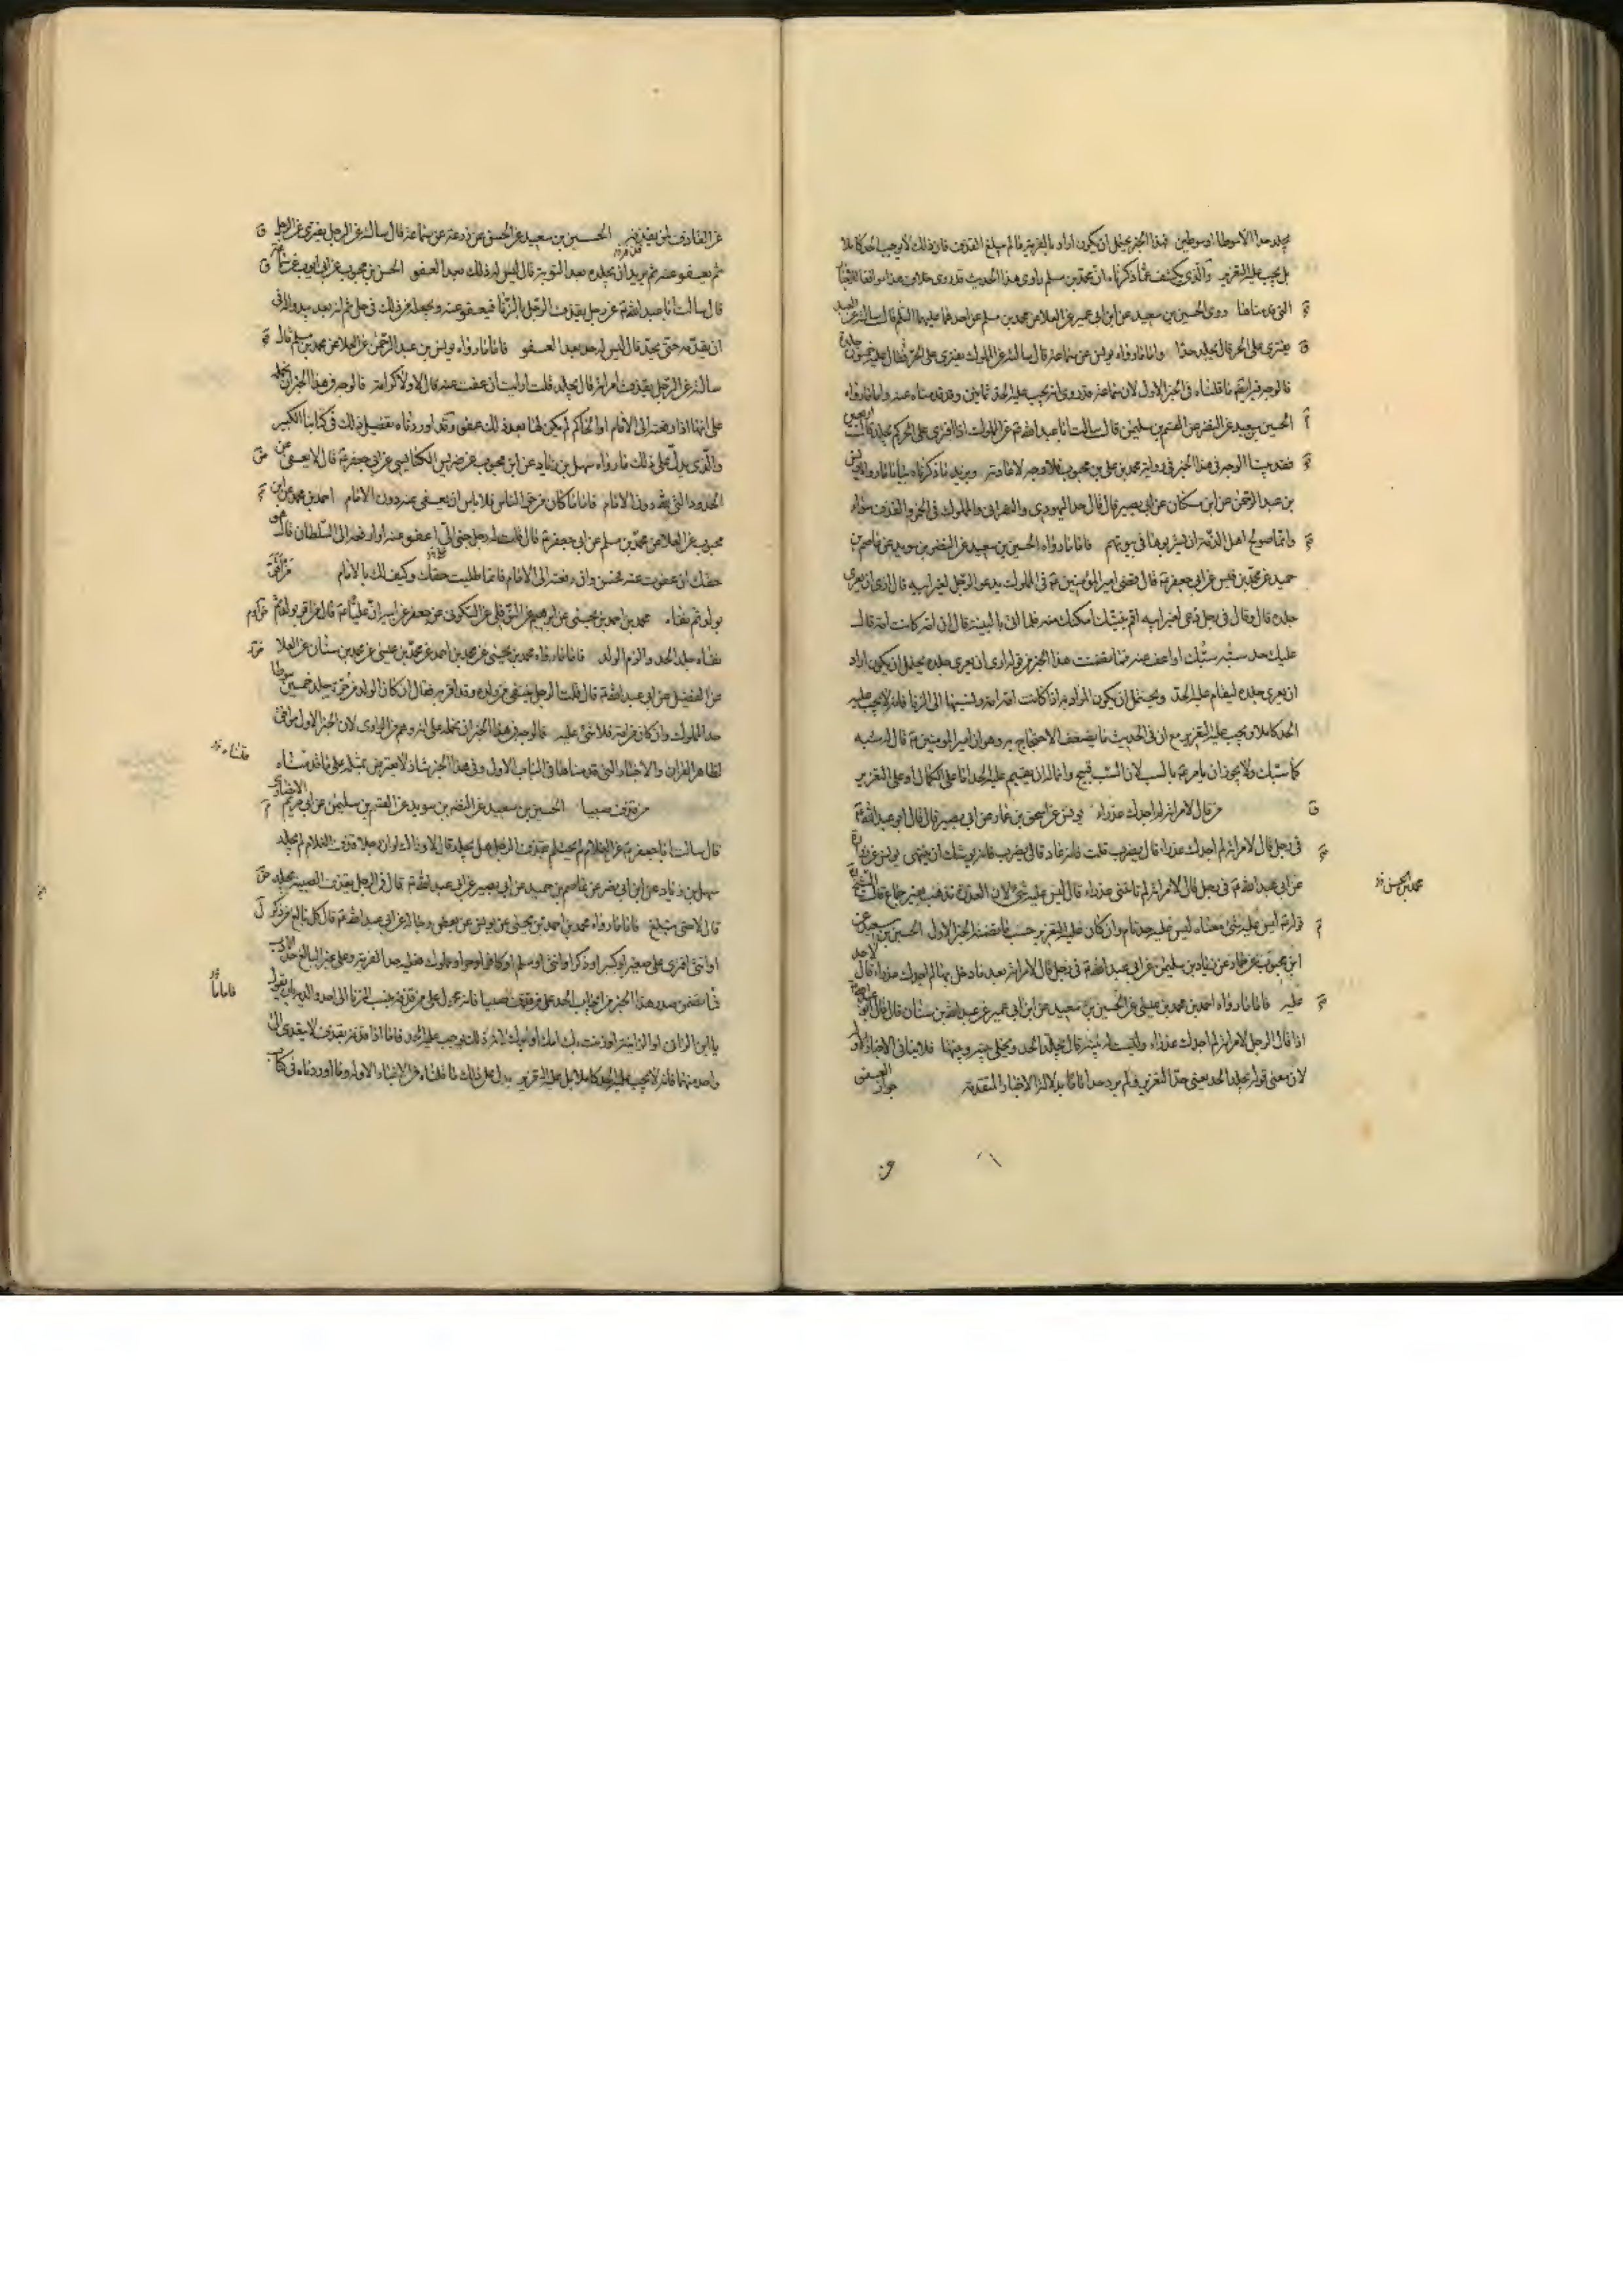 يجلد حدا الا سوطا او سوطين فهذا الخبر يحتمل ان يكون اراد بالفرية ما لم يبلغ القذف فان ذلك لا يوجب الحد كاملا
بل يجب عليه التعزير والذي يكشف عما ذكرناه ان محمد بن مسلم راوي هذا الحديث قد روى خلاف هذا موافقا للاخبار
التي قدمناها روى الحسين بن سعيد عن ابن ابي عمير عن العلا عن محمد بن مسلم عن احدهما عليهما السلم قال سالته عن العبد
يفتري على الحر قال يجلد حدا واما ما رواه يونس عن سماعة قال سالته عن المملوك يفتري على الحر فقال عليه خمسون جلدة
فالوجه فيه ايضا ما قلناه في الخبر الاول لان سماعة قد روى انه يجب عليه الحد ثمانين وقد قدمناه عنه واما ما رواه
الحسين بن سعيد عن النضر عن القسم بن سليمن قال سالت ابا عبد الله ع عن المملوك اذا افترى على الحر كم يجلد قال اربعين
فقد بينا الوجه في هذا الخبر في رواية محمد بن علي بن محبوب فلا وجه لاعادته ويزيد ما ذكرناه بيانا ما رواه يونس
بن عبد الرحمن عن ابن مسكان عن ابي بصير قال قال حد اليهودي والنصراني والمملوك في الخمر والفرية سواء
وانما صولح اهل الذمة ان يشربوها في بيوتهم فاما ما رواه الحسين بن سعيد عن النضر بن سويد عن عاصم بن
حميد عن محمد بن قيس عن ابي جعفر ع قال قضى امير المؤمنين ع في المملوك يدعو الرجل لغير ابيه قال ارى ان يعرى
جلده قال وقال في رجل دعي لغير ابيه اقم بينتك امكنك منه فلما اتى بالبينة قال ان امه كانت امة قال
عليك حد سبه كما سبك او اعف عنه فما تضمنت هذا الخبر من قوله ارى ان يعرى جلده يحتمل ان يكون اراد
ان يعرى جلده ليقام عليه الحد ويحتمل ان يكون المراد به اذا كانت امه امة ونسبها الى الزنا فانه لا يجب عليه
الحد كاملا ويجب عليه التعزير مع ان في الحديث ما يضعف الاحتجاج به وهو ان امير المومنين ع قال له سبه
كما سبك ولا يجوز ان يامر ع بالسب لان السب قبيح وانما له ان يقيم عليه الحد اما على الكمال او على التعزير
من قال لامراته لم اجدك عذراء يونس عن اسحق بن عمار عن ابي بصير قال قال ابو عبد الله ع
في رجل قال لامراته لم اجدك عذراء قال يضرب قلت فانه عاد قال يضرب فانه يوشك ان ينتهي يونس عن زرارة
عن ابي عبد الله ع في رجل قال لامراته لم تاتني عذراء قال ليس عليه شئ لان العذرة تذهب بغير جماع قال الشيخ
قوله ع ليس عليه شئ معناه ليس عليه حد تام وان كان عليه التعزير حسب ما تضمنه الخبر الاول الحسين بن سعيد عن
ابن محبوب عن حماد عن زياد بن سليمن عن ابي عبد الله ع في رجل قال لامراته بعد ما دخل بها لم اجدك عذراء قال لا حد
عليه فاما ما رواه احمد بن محمد بن عيسى عن الحسين بن سعيد عن ابن ابي عمير عن عبد الله بن سنان قال قال ابو عبد الله ع
اذا قال الرجل لامراته لم اجدك عذراء وليست له بينة قال يجلد الحد ويخلى بينه وبينها فلا ينافي الاخبار الاولة
لان معنى قوله يجلد الحد يعني حد التعزير ولم يرد حدا تاما بدلالة الاخبار المتقدمة جواز العفو
محمد بن الحسن
عن القاذف لمن يقذفه الحسين بن سعيد عن الحسن عن زرعة عن سماعة قال سالته عن الرجل يفتري على الرجل
ثم يعفو عنه ثم يريد ان يجلده بعد التوبة قال ليس له ذلك بعد العفو الحسن بن محبوب عن ابي ايوب عن سماعة
قال سالت ابا عبد الله ع عن رجل يقذف الرجل بالزنا فيعفو عنه ويجعله من ذلك في حل ثم انه بعد يبدو له في
ان يقدمه حتى يجلده قال ليس له حد بعد العفو فاما ما رواه يونس بن عبد الرحمن عن العلا عن محمد بن مسلم قال
سالته عن الرجل يقذف امراته قال يجلد قلت ارايت ان عفت عنه قال لا ولا كرامة فالوجه في هذا الخبر ان نحمله
على انها اذا رفعته الى الامام او الحاكم لم يكن لها بعد ذلك عفو وقد اوردناه تفصيل ذلك في كتابنا الكبير
والذي يدل على ذلك ما رواه سهل بن زياد عن ابن محبوب عن ضريس الكناسي عن ابي جعفر ع قال لا يعفى عن
الحدود التي لله دون الامام فاما ما كان من حق الناس فلا باس ان يعفى عنه دون الامام احمد بن محمد عن ابن
محبوب عن العلا عن محمد بن مسلم عن ابي جعفر ع قال قلت له رجل جنى الي اعفو عنه او ارفعه الى السلطان قال هو
حقك ان عفوت عنه فحسن وان رفعته الى الامام فانما طلبت حقك وكيف لك بالامام من اقر
بولد ثم نفاه محمد بن احمد بن يحيى عن ابرهيم عن النوفلي عن السكوني عن جعفر عن ابيه ان عليا ع قال من اقر بولد ثم
نفاه جلد الحد والزم الولد فاما ما رواه محمد بن يحيى عن محمد بن احمد عن محمد بن عيسى عن محمد بن سنان عن العلا
عن الفضيل عن ابي عبد الله ع قال قلت الرجل ينتفي من ولده وقد اقر به فقال ان كان الولد من حرة جلد خمسين سوطا
حد المملوك وان كان من امة فلا شئ عليه فالوجه في هذا الخبر ان نحمله على انه وهم من الراوي لان الخبر الاول موافق
لظاهر القران والاخبار التي قدمناها في الباب الاول وفي هذا الخبر شاذ لا يعترض بمثله على ما قدمناه
من قذف صبيا الحسين بن سعيد عن النضر بن سويد عن القسم بن سليمن عن ابي مريم الانصاري
قال سالت ابا جعفر ع عن الغلام لم يحتلم يقذف الرجل هل يجلد قال لا وذلك لو ان رجلا قذف الغلام لم يجلد
سهل بن زياد عن ابن ابي نصر عن عاصم بن حميد عن ابي بصير عن ابي عبد الله ع قال في الرجل يقذف الصبية يجلد
قال لا حتى تبلغ فاما ما رواه محمد بن احمد بن يحيى عن يونس عن بعض رجاله عن ابي عبد الله ع قال كل بالغ من ذكر
او انثى افترى على صغير او كبير او ذكر او انثى او مسلم او كافر او حر او مملوك فعليه حد الفرية وعلى غير البالغ حد الادب
فما تضمن صدر هذا الخبر من ايجاب الحد على من قذف صبيا فانه محمول على من قذفه بنسبة الزنا الى احد والديه بان يقول
يا ابن الزاني او الزانية او زنت بك امك او ابوك لان ذلك يوجب عليه الحد فاما اذا قذفه بقذف لا يتعدى الى
واحد منهما فانه لا يجب عليه الحد كاملا بل عليه التعزير يدل على ذلك ما قلناه من الاخبار الاولة وما اوردناه في كتاب
قلناه
فاما ما